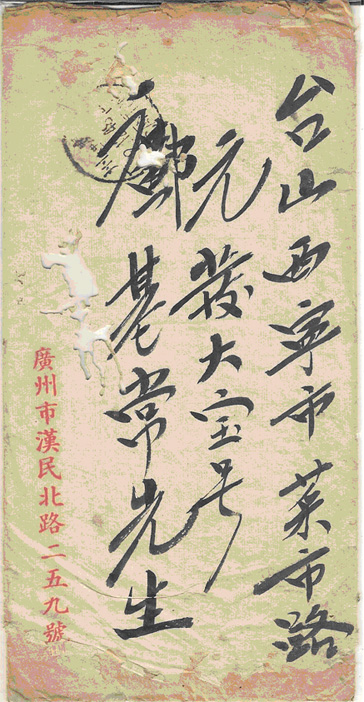 台山西寧市菜市路
元發大宝号
鄺基常先生
廣州市漢民北路二五九號